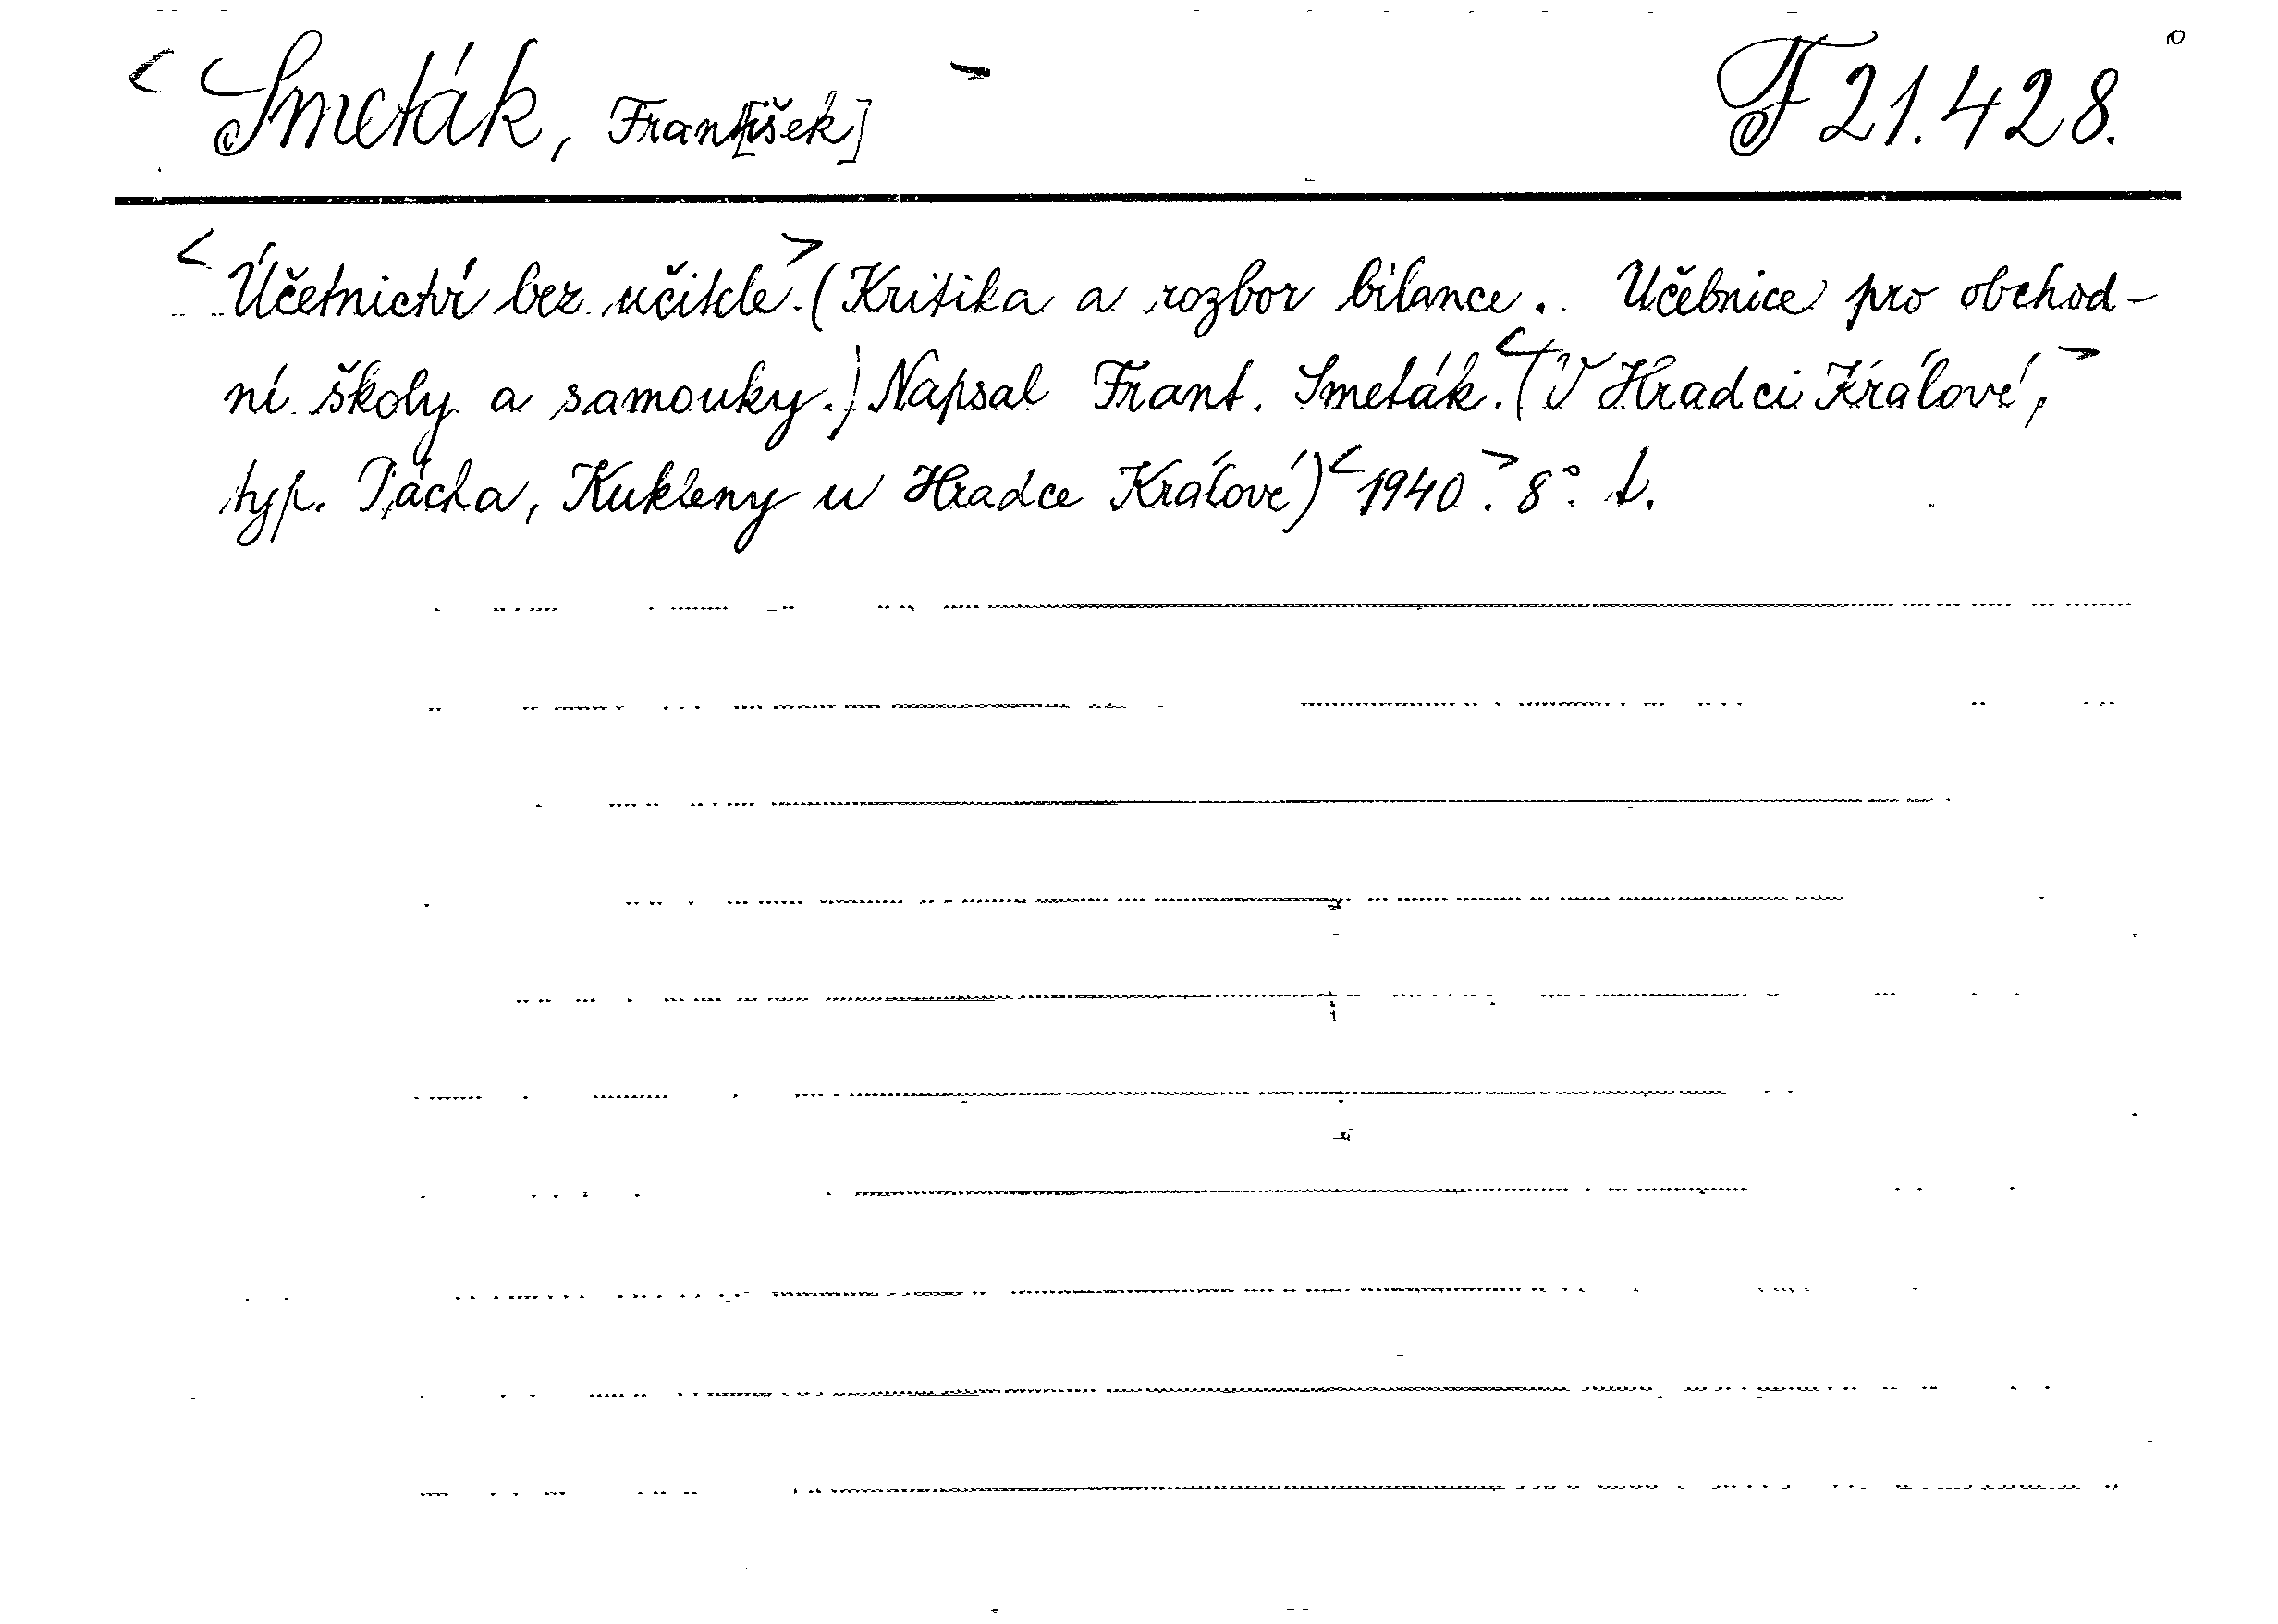 < Smeták, Frant[išek] > F 21.428.
< Účetnictví bez učitele.> (Kritika a rozbor bilance. Učebnice pro obchod-
ní školy a samouky.) Napsal Frant. Smeták. <(V Hradci Králové,>
typ. Pácha, Kukleny u Hradce Králové) <1940.> 8°. t.